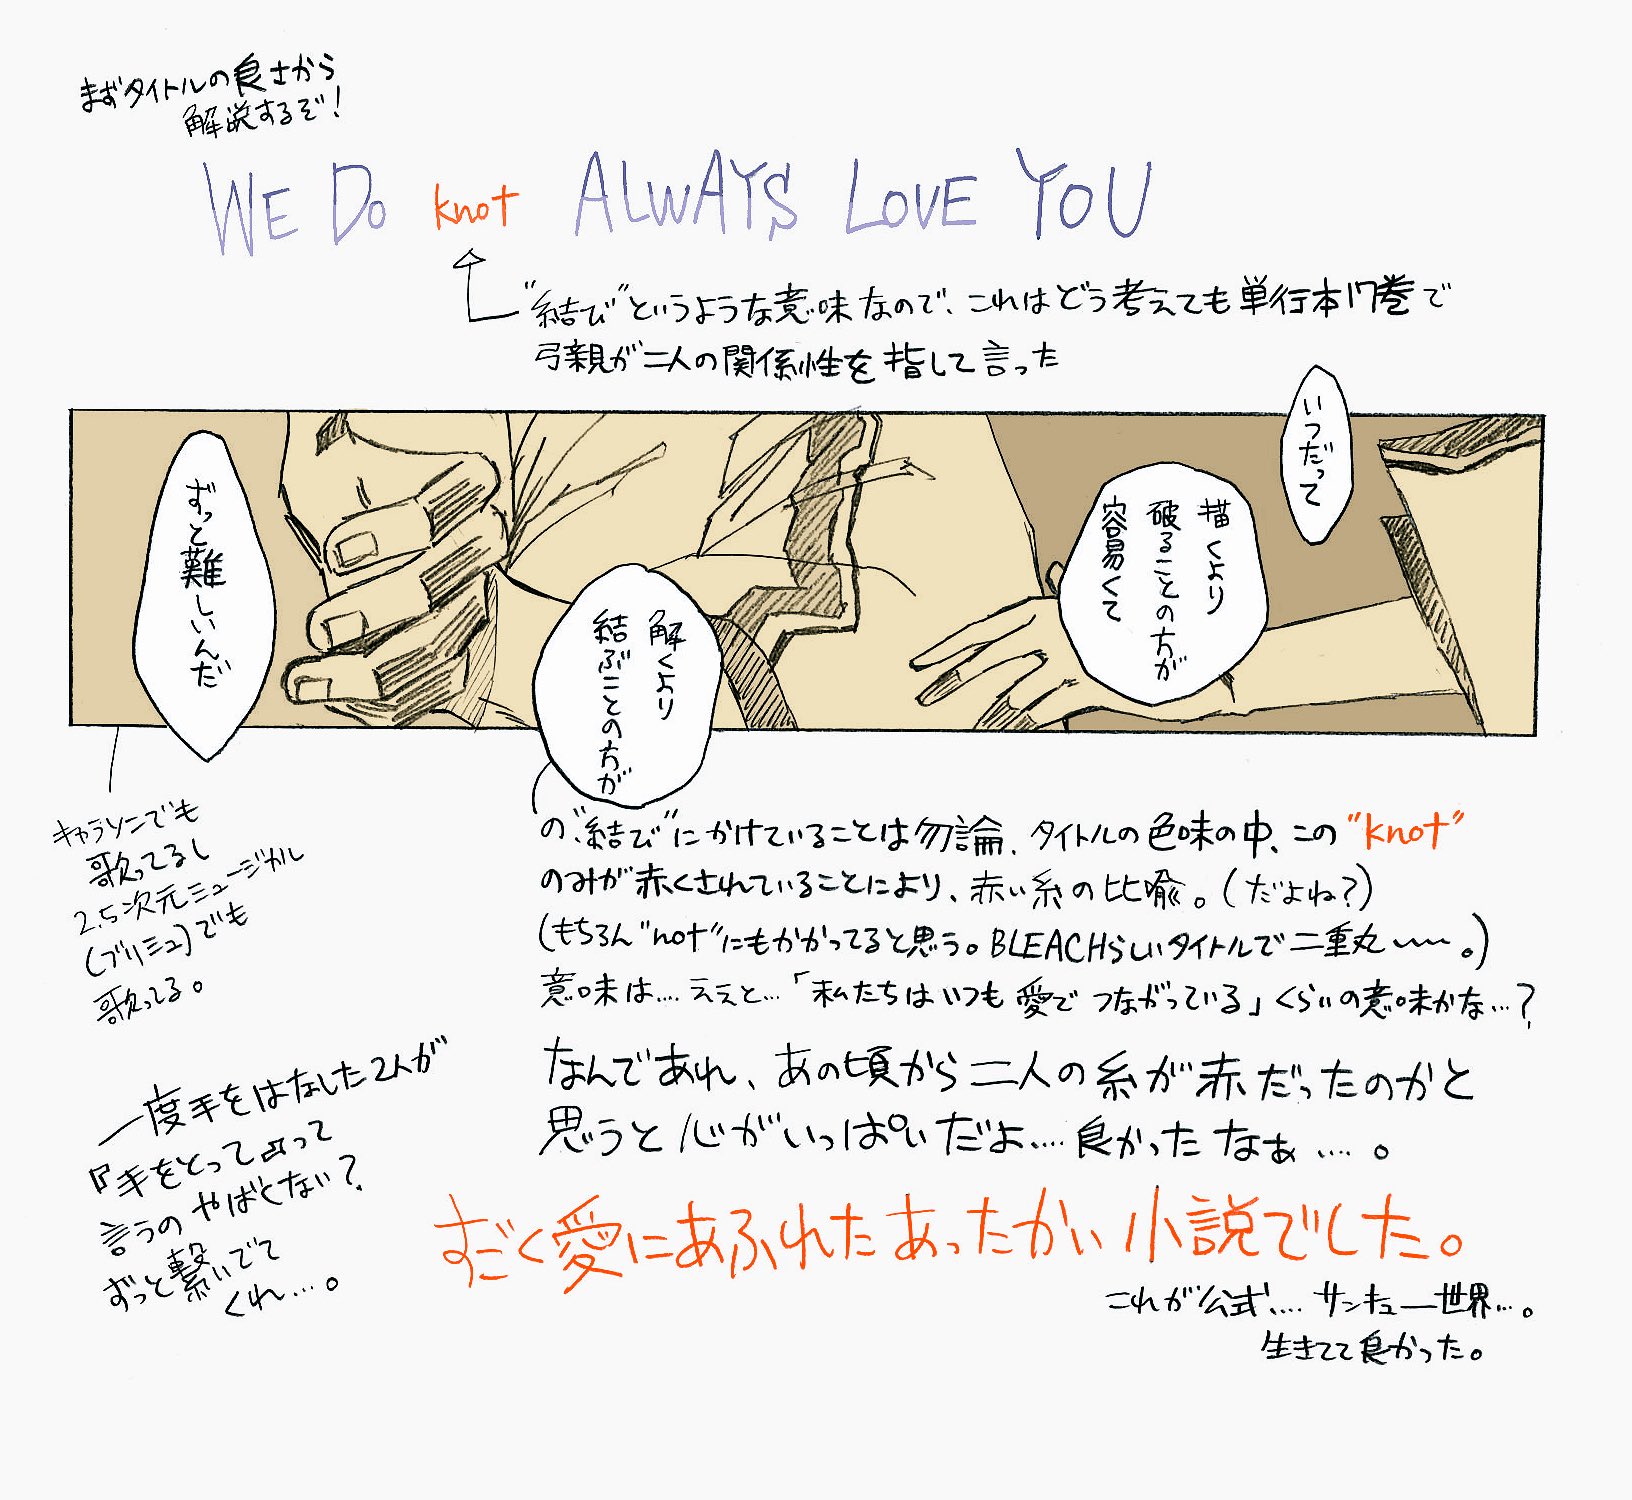 まずタイトルの良さから
解説するぞ!
WE Do knot ALWAYS LOVE YOU
"結び"というような意味なので、これはどう考えても単行本17巻で
弓親が二人の関係性を指して言った
いつだって
描くより
破ることの方が
容易くて
解くより
結ぶことの方が
ずっと難しいんだ
キャラソンでも
歌ってるし
2.5次元ミュージカル
(ブリミュ)でも
歌ってる。
の"結び"にかけていることは勿論、タイトルの色味の中、この"knot"
のみが赤くされていることにより、赤い糸の比喩。(だよね?)
(もちろん"not"にもかかってると思う。BLEACHらしいタイトルで二重丸〜〜。)
意味は....ええと...「私たちはいつも愛でつながっている」くらいの意味かな...?
なんであれ、あの頃から二人の糸が赤だったのかと
思うと心がいっぱいだよ....良かったなぁ....。
一度手をはなした2人が
『手をとって』って
言うのやばくない?
ずっと繋いでて
くれ...。
すごく愛にあふれたあったかい小説でした。
これが公式....サンキュー世界...。
生きてて良かった。